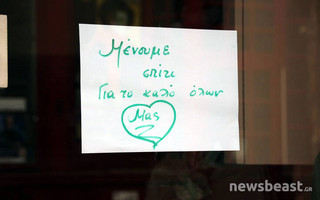 Μένουμε
σπίτι
Για το καλό όλων
Μας
newsbeast.gr